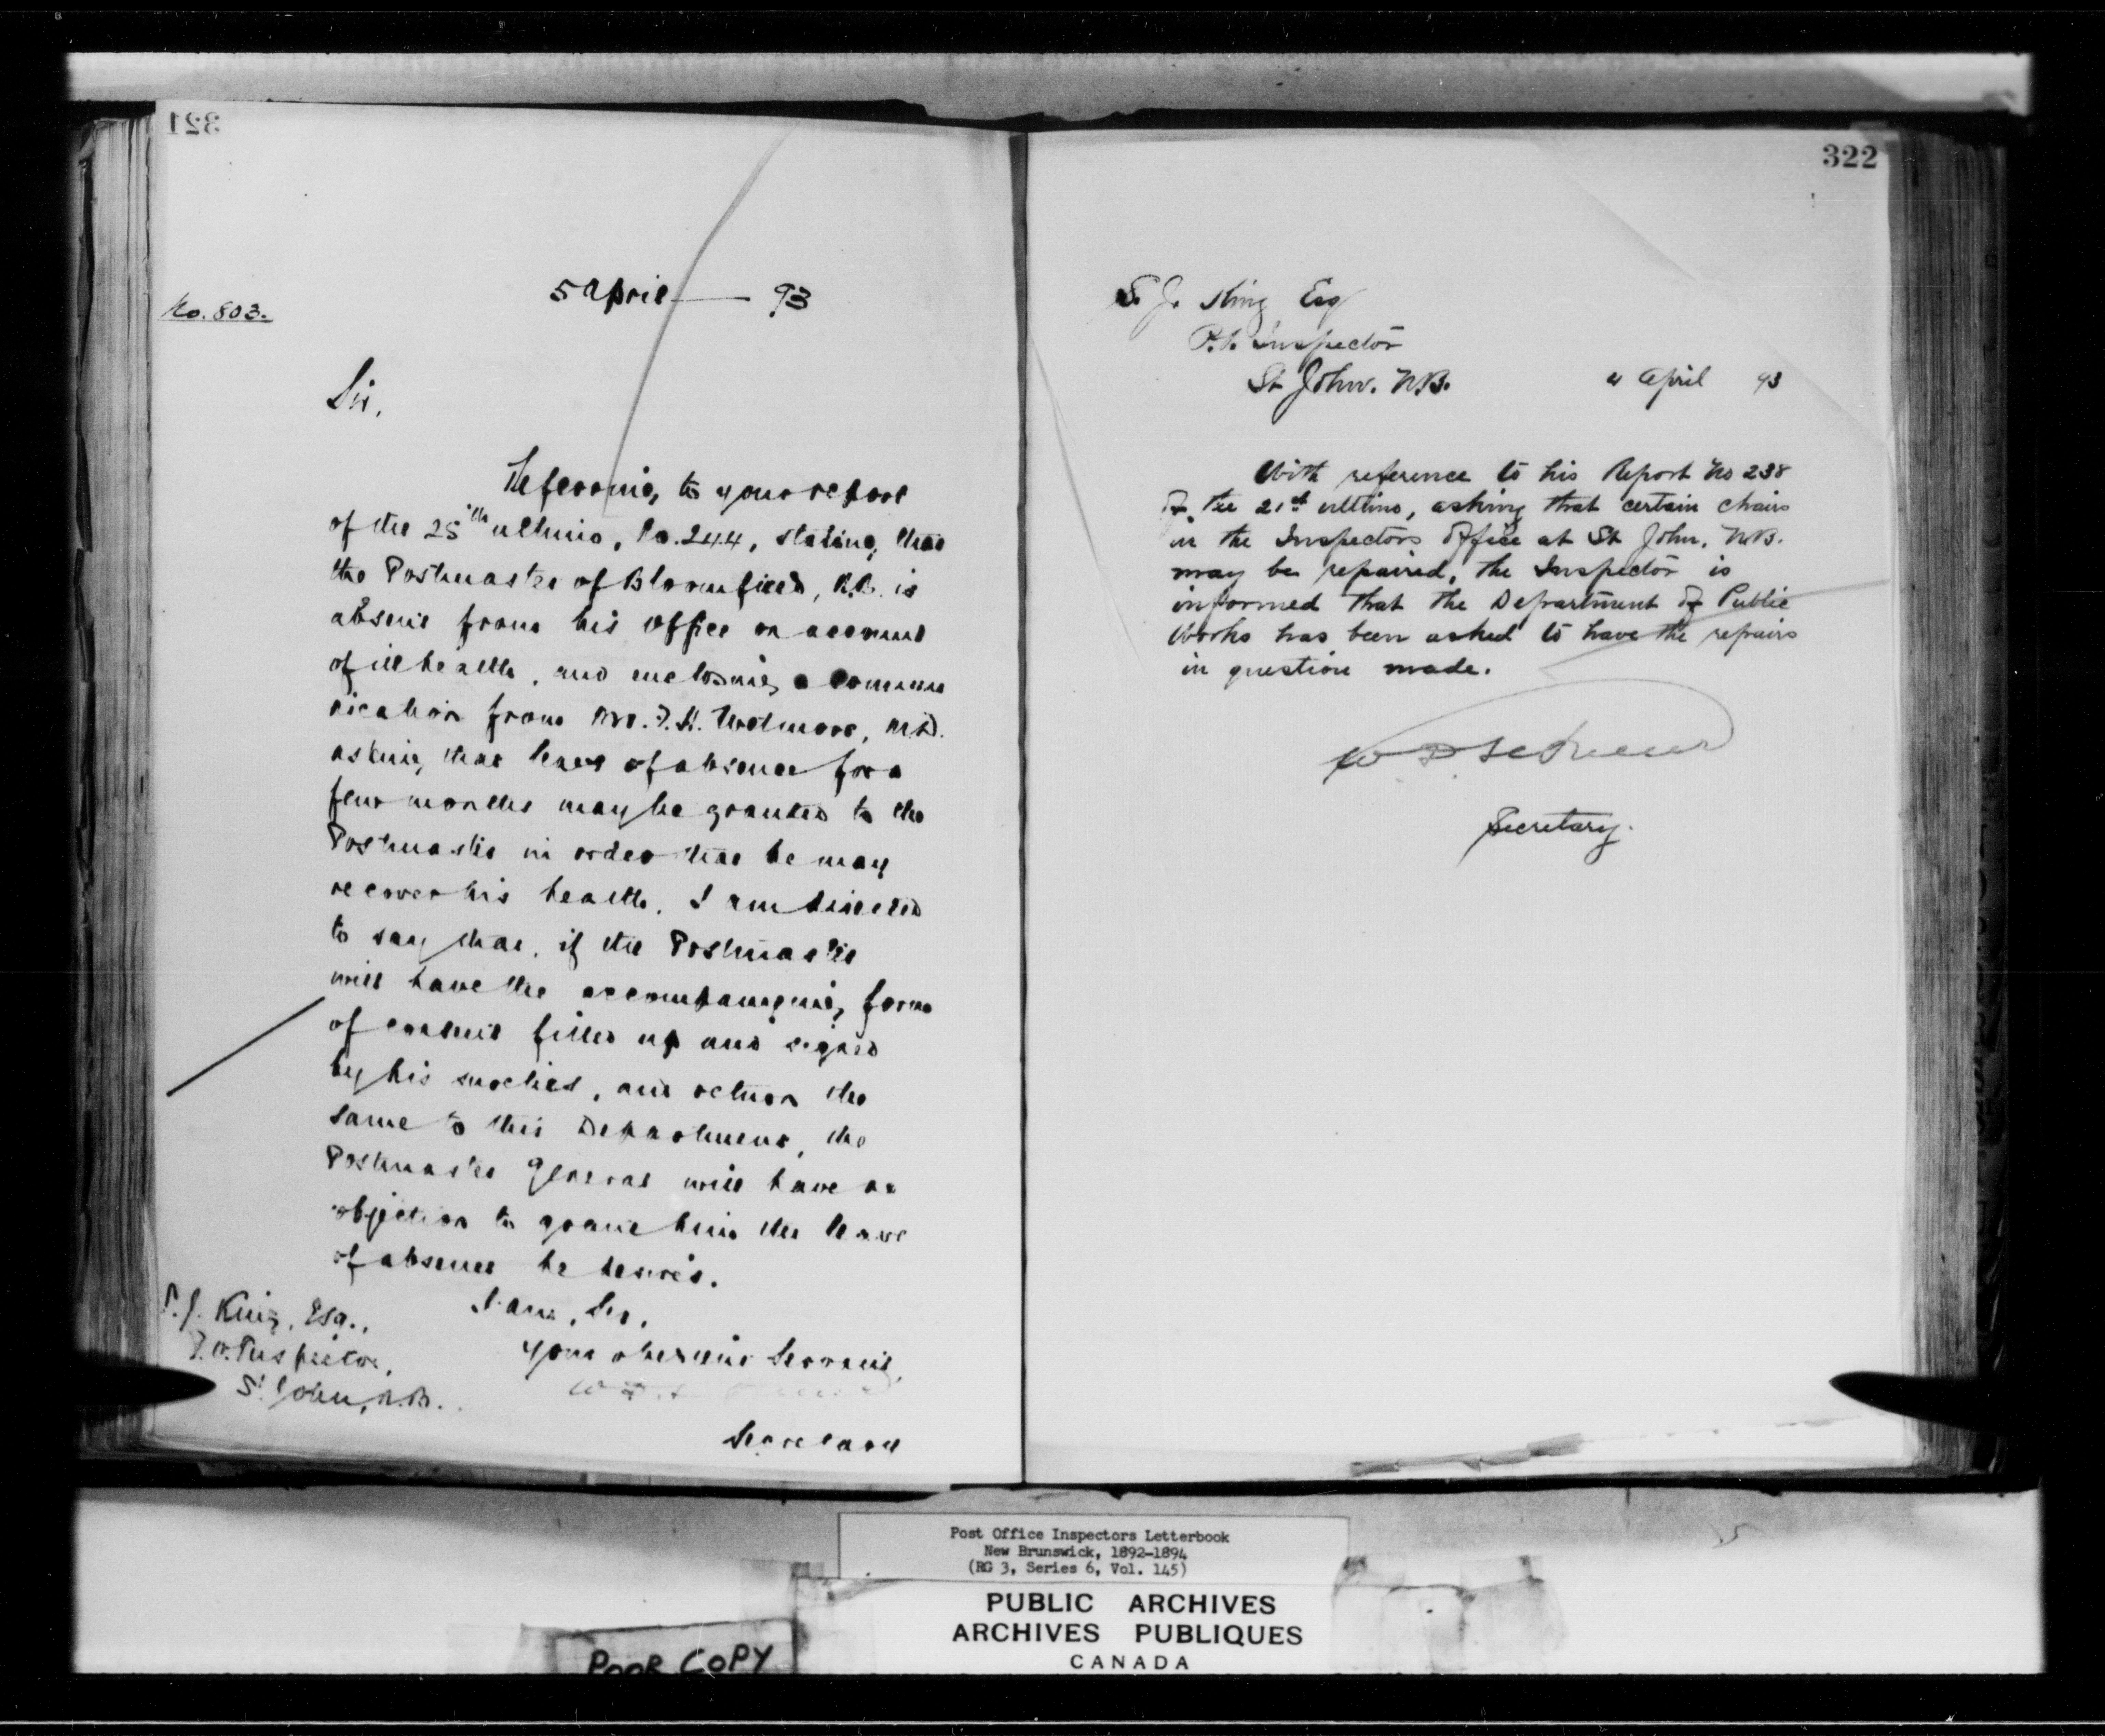 321
No. 803.
5 April — 93
Sir,
Referring to your report
of the 25th ultimo, No. 244, stating that
the Postmaster of Bloomfield, N.B. is
absent from his Office on account
of ill health, and enclosing a commu
nication from Mr. F. H. Wetmore, M.D.
asking that leave of absence for a
few months may be granted to the
Postmaster in order that he may
recover his health, I am directed
to say that, if the Postmaster
will have the accompanying form
of consent filled up and signed
by his sureties, and return the
same to this Department, the
Postmaster General will have no
objection to grant him the leave
of absence he desires.
I am, Sir,
Your obedient Servant,
Secretary
S. J. King, Esq.,
P.O. Inspector,
St John, N.B.
322
S. J. King Esq
P.O. Inspector
St John. N.B. 4 April 93
With reference to his Report No 238
of the 21st ultimo, asking that certain chairs
in the Inspectors Office at St John, N.B.
may be repaired, the Inspector is
informed that the Department of Public
Works has been asked to have the repairs
in question made.
Secretary.
Post Office Inspectors Letterbook
New Brunswick, 1892-1894
(RG 3, Series 6, Vol. 145)
PUBLIC ARCHIVES
ARCHIVES PUBLIQUES
CANADA
POOR COPY